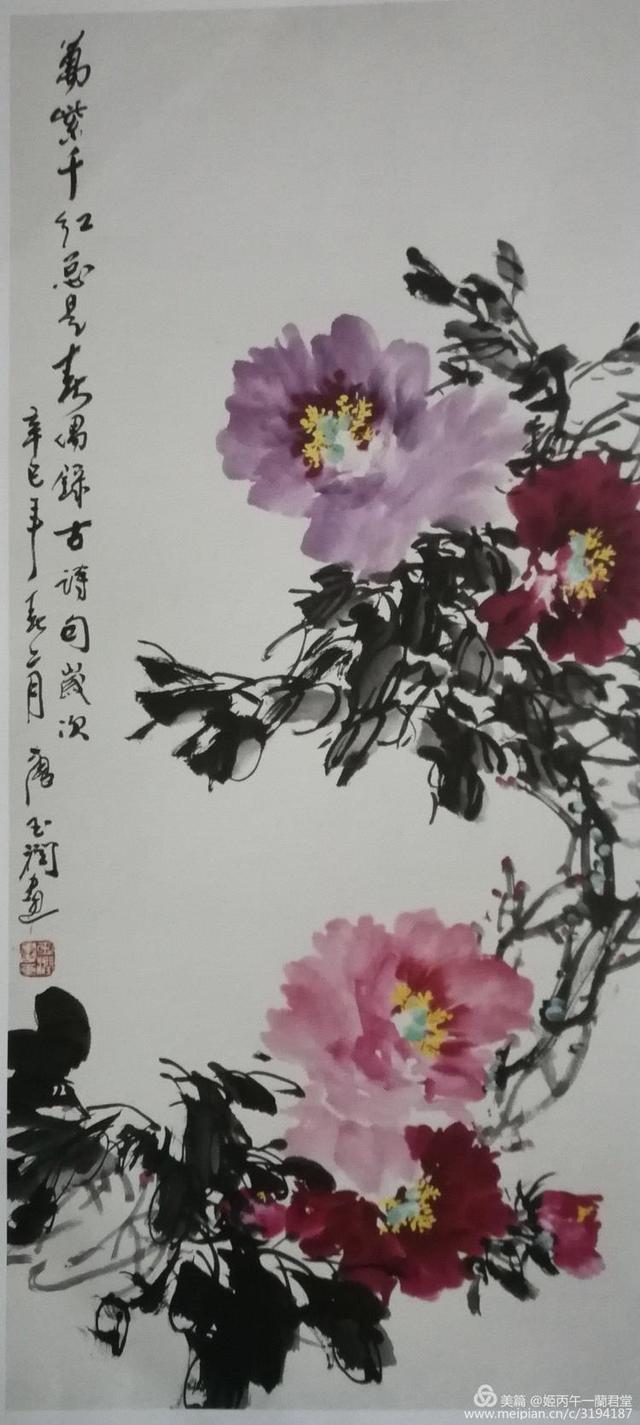 萬紫千红总是春偶錄古詩句歲次
辛巳年春二月 唐玉润畫
美篇 @姬丙午一蘭君堂
www.meipian.cn/c/3194187